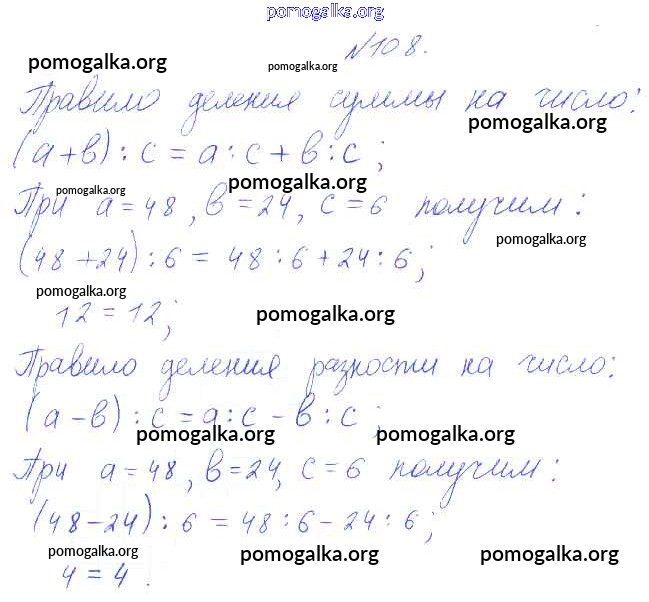 pomogalka.org
№108.
pomogalka.org
pomogalka.org
Правило деления суммы на число:
pomogalka.org
(а+в) : с = а : с + в : с ;
pomogalka.org
pomogalka.org
При а = 48 , в = 24 , с = 6 получим :
pomogalka.org
(48 + 24) : 6 = 48 : 6 + 24 : 6 ;
pomogalka.org
12 = 12 ;
pomogalka.org
Правило деления разности на число:
(а - в) : с = а : с - в : с ;
pomogalka.org
pomogalka.org
При а = 48 , в = 24, с = 6 получим :
(48 - 24) : 6 = 48 : 6 - 24 : 6 ;
pomogalka.org
pomogalka.org
pomogalka.org
4 = 4 .